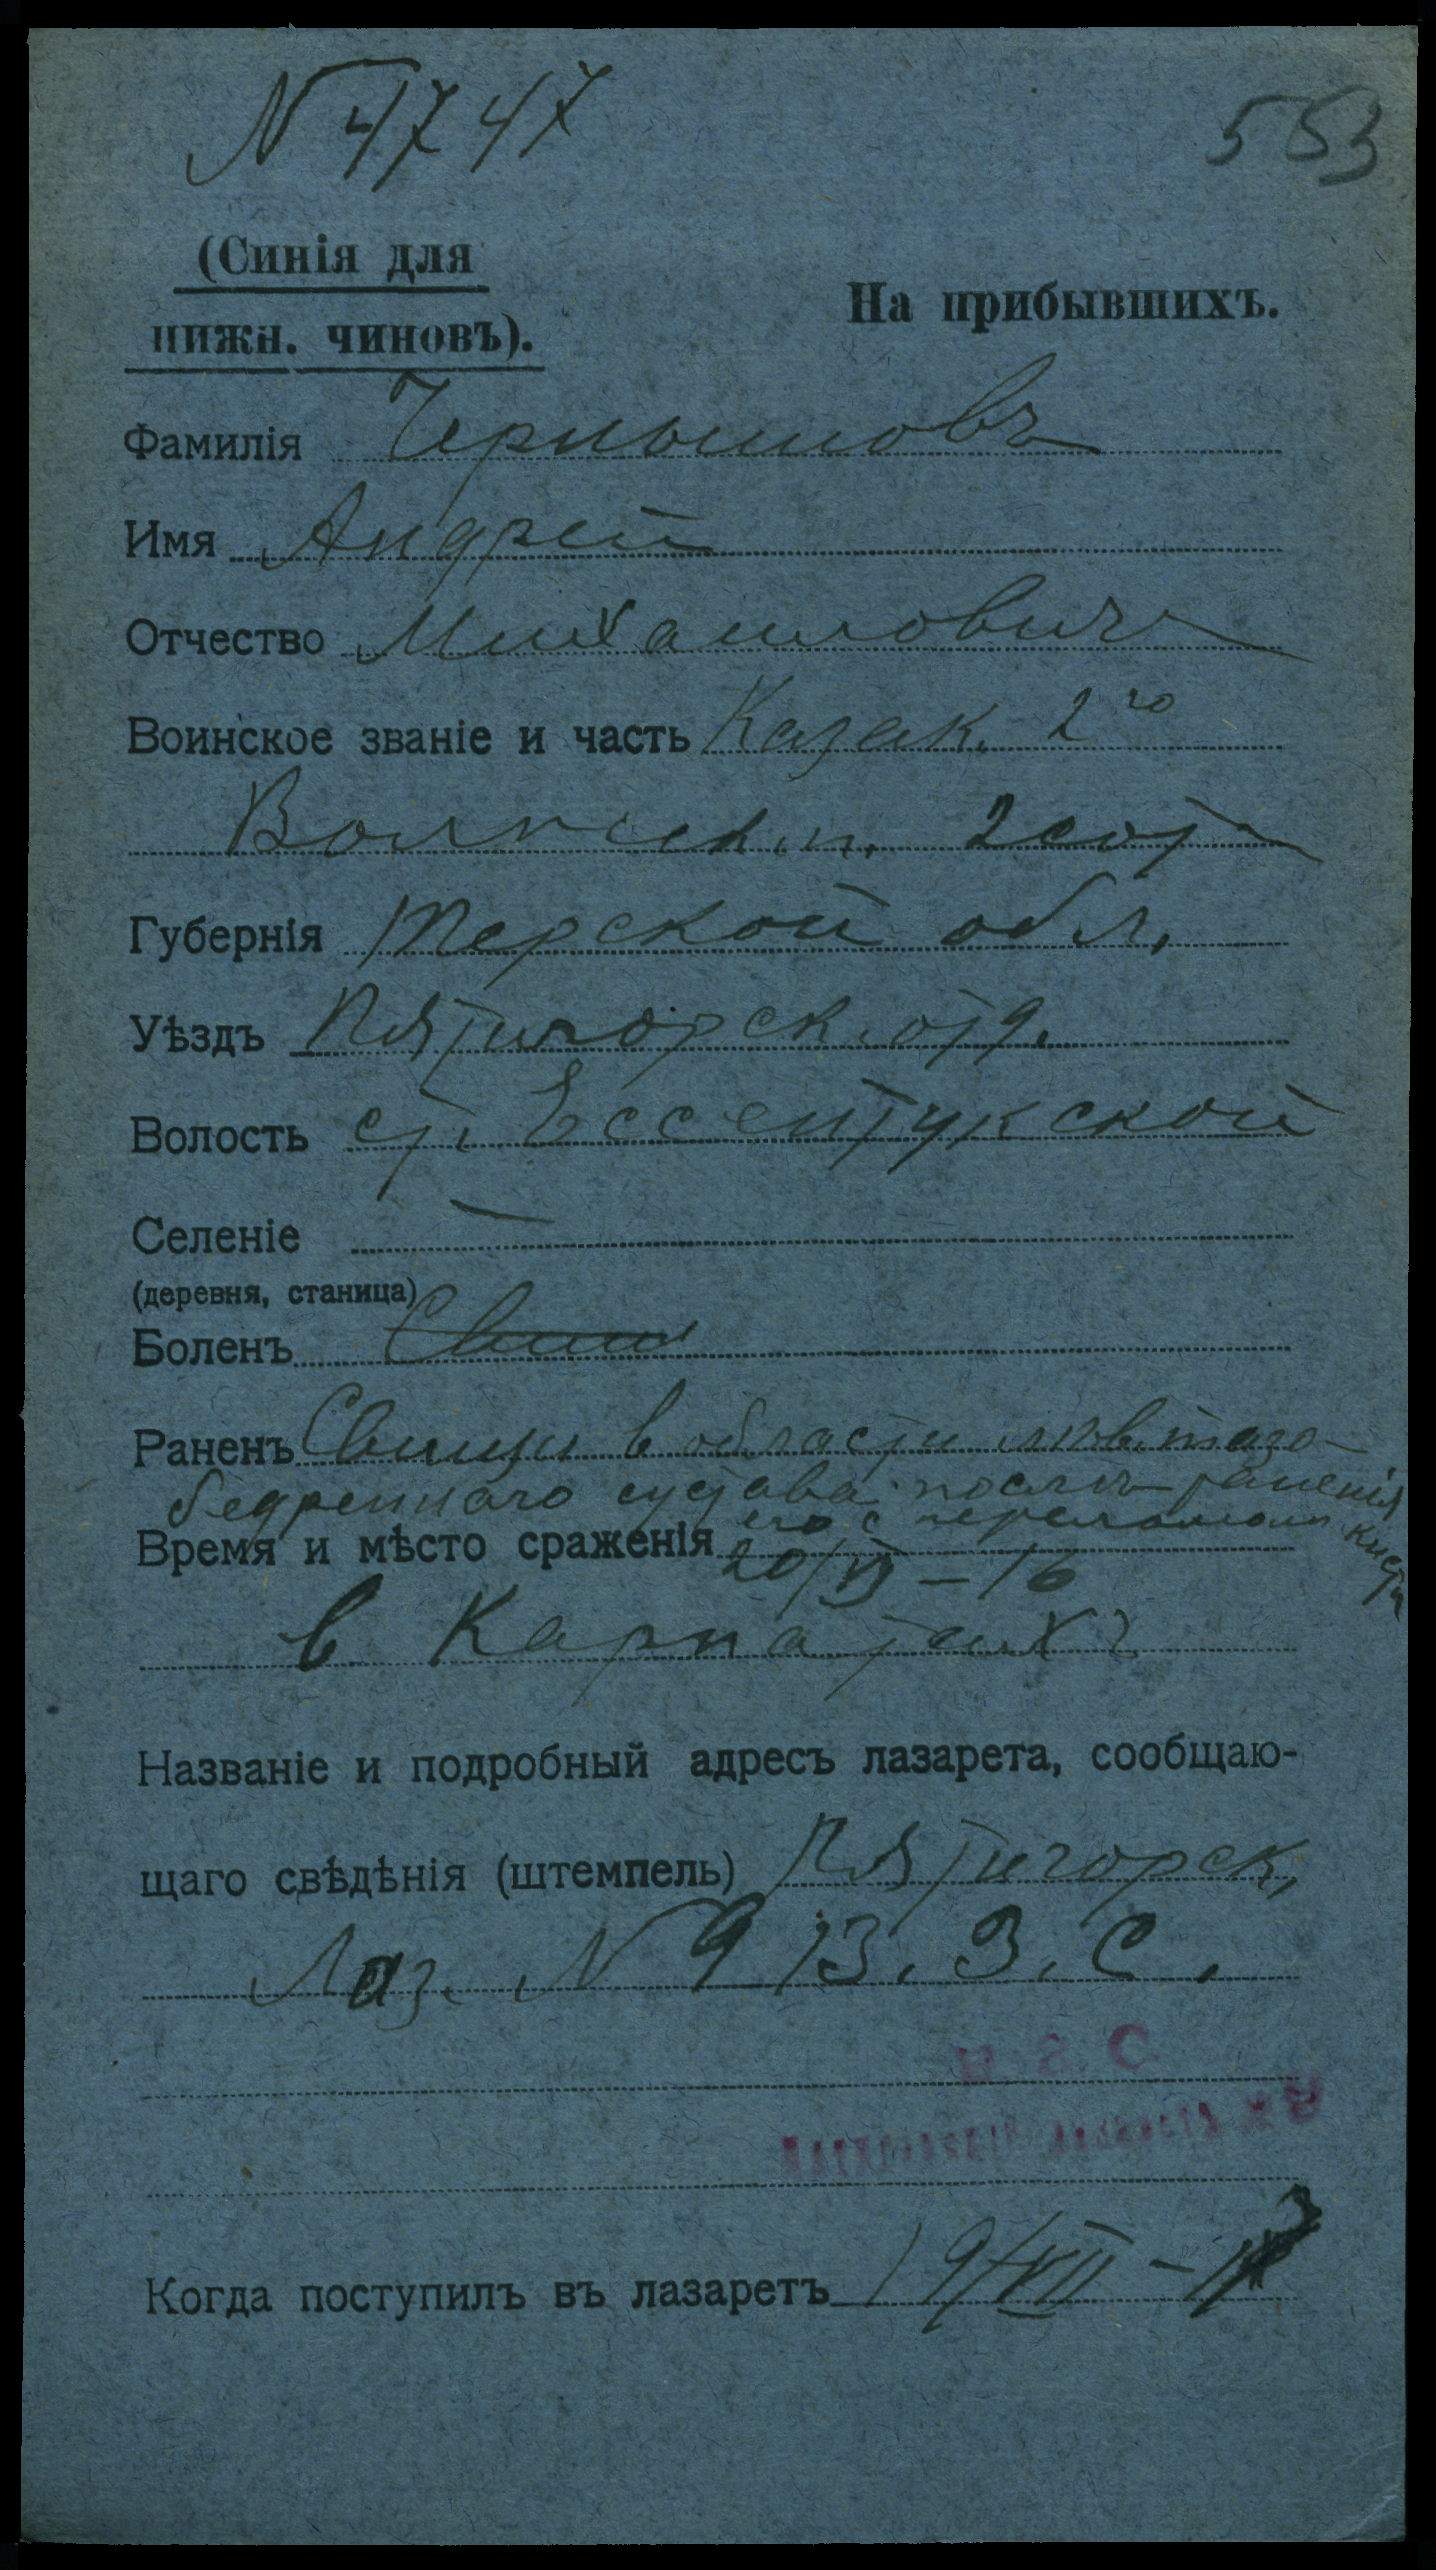 N 4747
553
(Синія для
нижн. чиновъ).
На прибывшихъ.
Фамилія Чернышовъ
Имя Андрей
Отчество Михаиловичъ
Воинское званіе и часть Казак. 2го
Волгск. п. 2 сот
Губернія Терской обл.
Уѣздъ Пятигорск. отд.
Волость ст. Ессентукской
Селеніе —
(деревня, станица)
Боленъ Свищ
Раненъ Свищи в области лѣв. тазо-
бедреннаго сустава послѣ раненія
его с переломом кости
Время и мѣсто сраженія 20/VI – 16
в Карпатахъ
Названіе и подробный адресъ лазарета, сообщаю-
щаго свѣдѣнія (штемпель) Пятигорск,
Лаз. N 9 В. З. С.
В. З. С.
Когда поступилъ въ лазаретъ 19/VII – 17